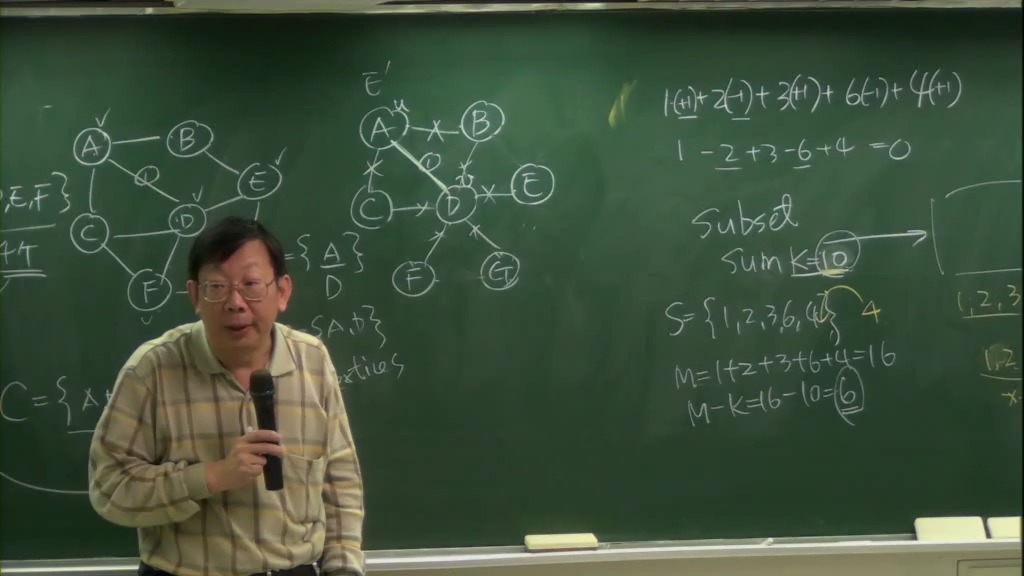 E'
A
B
C
D
E
F
A
B
C
D
E
F
G
, E, F }
= { A
D
{ A, D }
C = { A
1(+1) + 2(-1) + 3(+1) + 6(-1) + 4(+1)
1 - 2 + 3 - 6 + 4 = 0
subset
sum K=10
S = { 1, 2, 3, 6, 4 } 4
M = 1+2+3+6+4 = 16
M - K = 16 - 10 = 6
1, 2, 3
1, 2